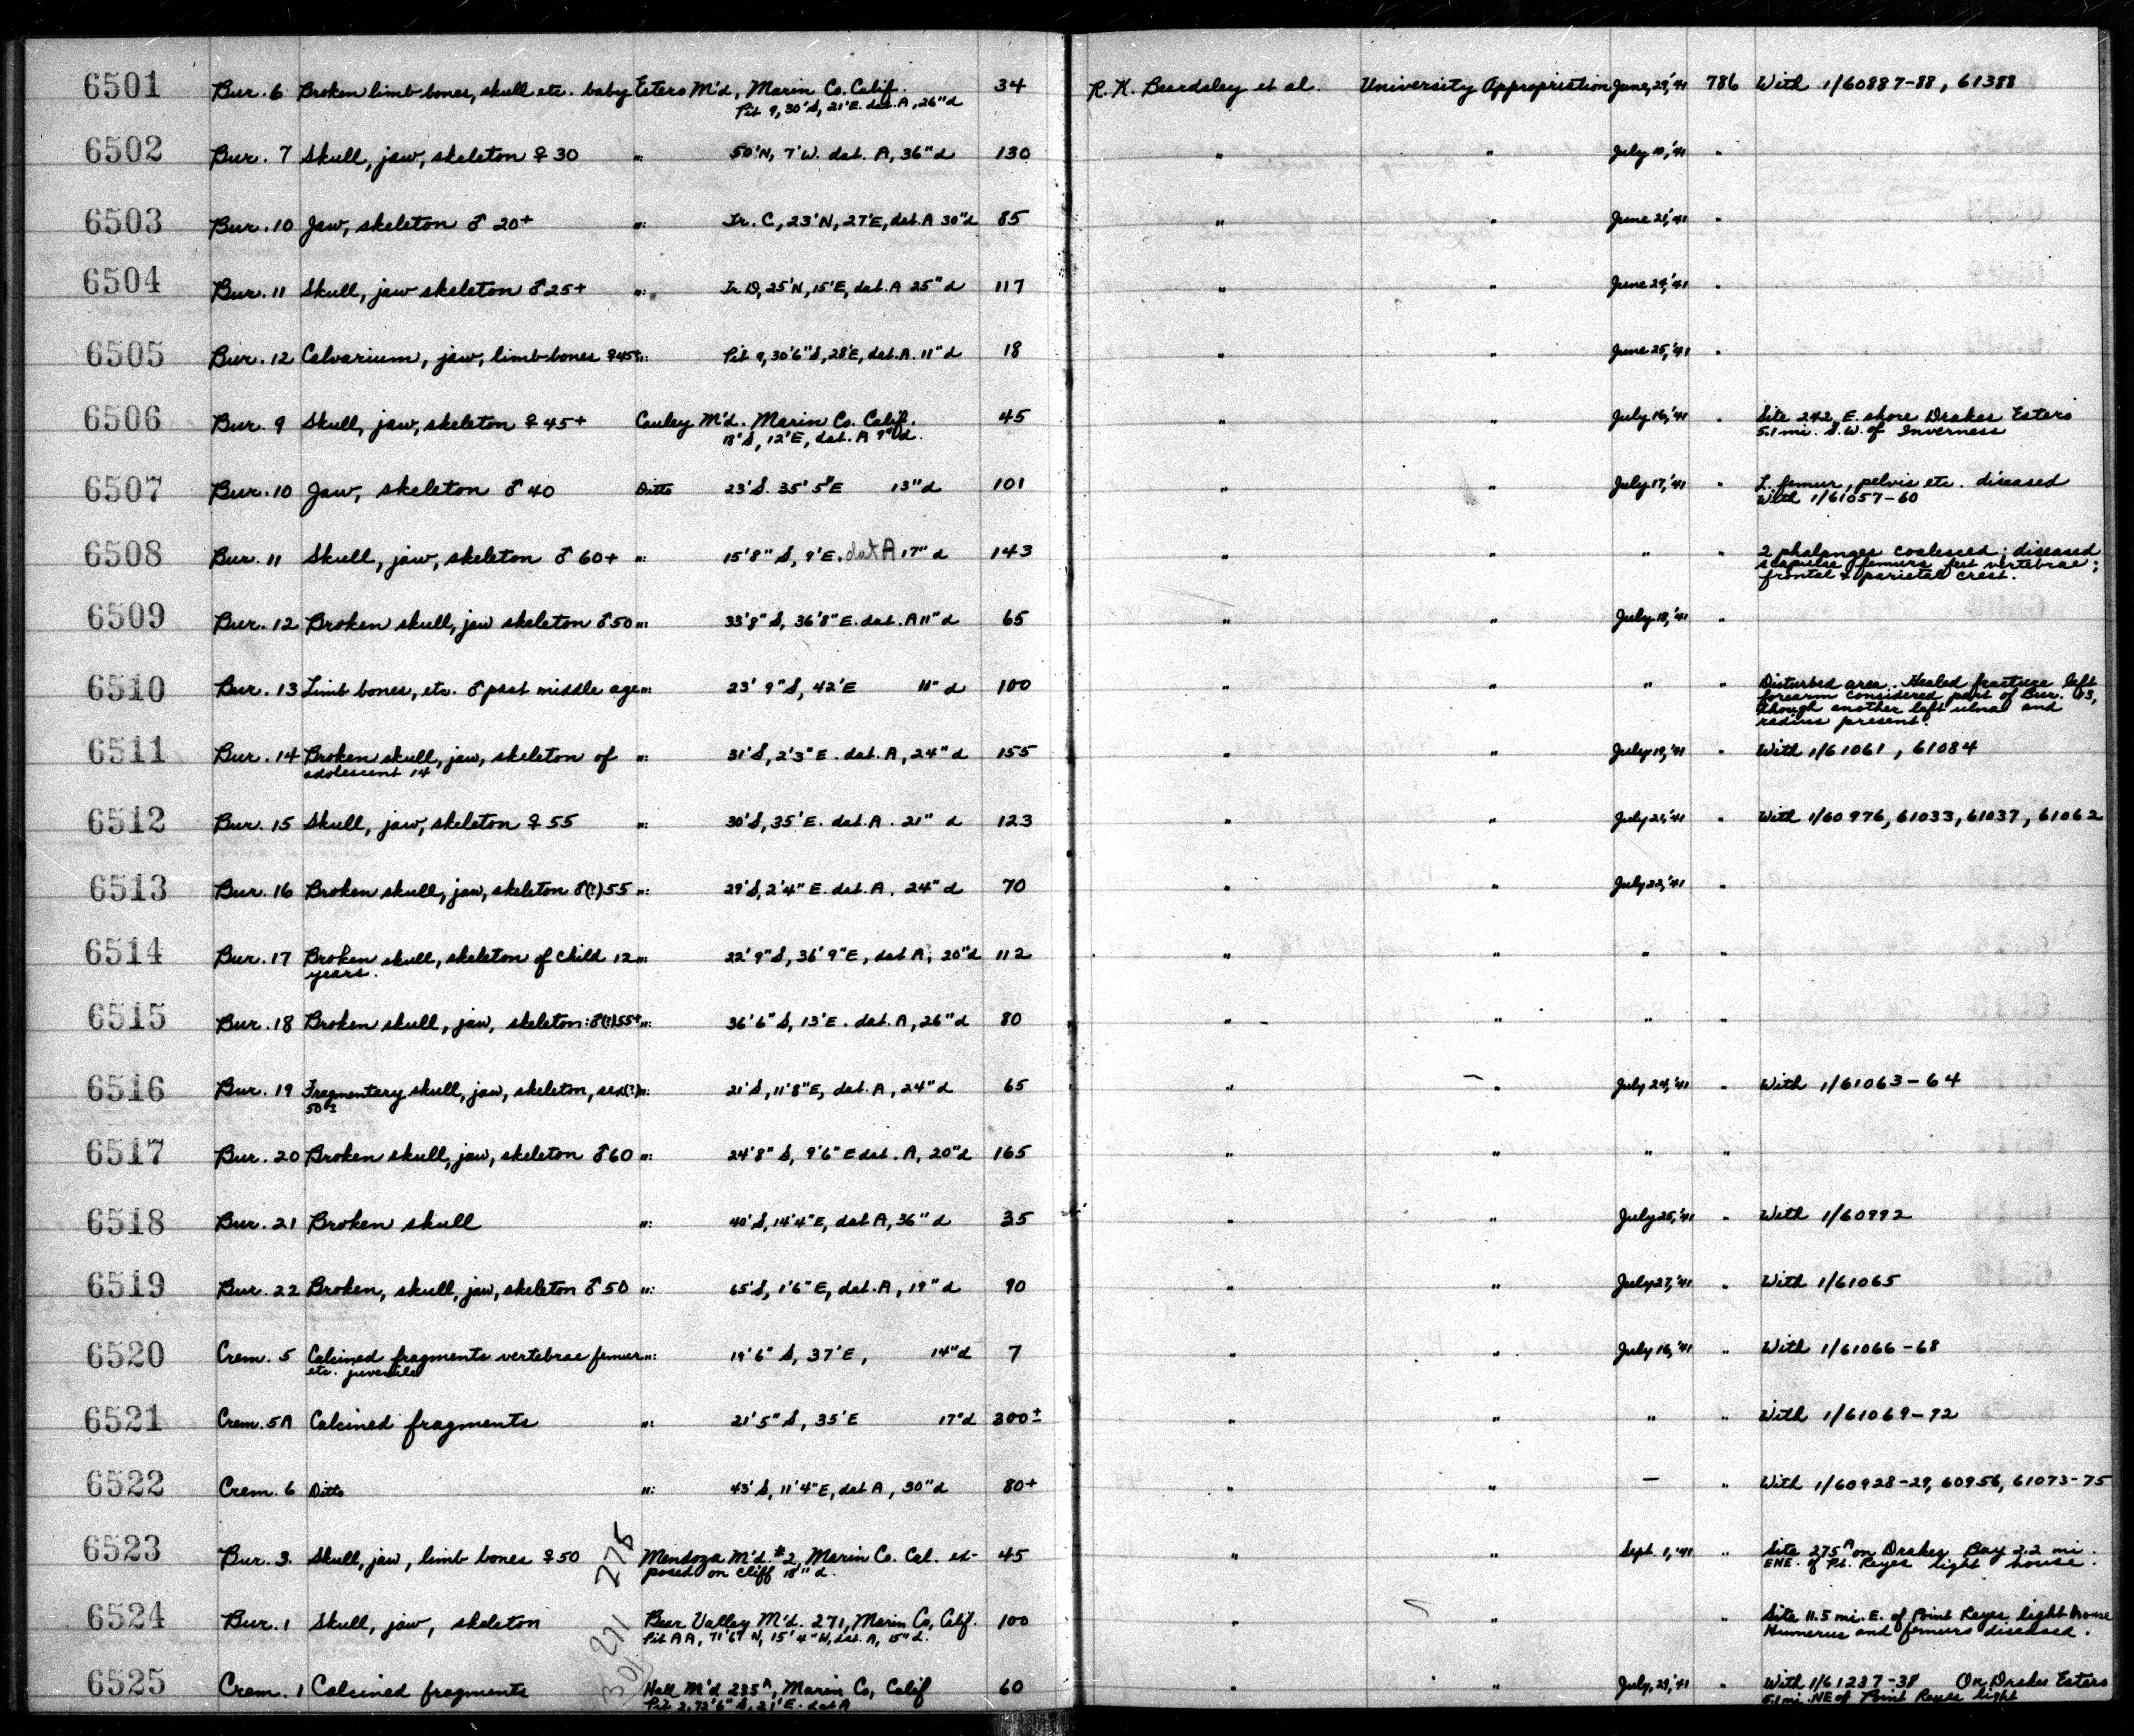 6501 Bur. 6 Broken limb bones, skull etc. baby Estero M'd, Marin Co. Calif. 34 R. K. Beardsley et al. University Appropriation June, 29,'41 786 With 1/60887-88, 61388
Pit 9, 30'S, 21'E. dat. A, 26"d
6502 Bur. 7 Skull, jaw, skeleton ♀ 30 " 50'N, 7'W. dat. A, 36"d 130 " " July 10,'41 "
6503 Bur. 10 Jaw, skeleton ♂ 20+ " Tr. C, 23'N, 27'E, dat. A 30"d 85 " " June 21,'41 "
6504 Bur. 11 Skull, jaw skeleton ♂ 25+ " Tr D, 25'N, 15'E, dat. A 25"d 117 " " June 24,'41 "
6505 Bur. 12 Calvarium, jaw, limb bones ♀ 45+ " Pit 9, 30'6"S, 28'E, dat. A. 11"d 18 " " June 25,'41 "
6506 Bur. 9 Skull, jaw, skeleton ♀ 45+ Cauley M'd. Marin Co. Calif. 45 " " July 16,'41 " Site 242, E. shore Drakes Estero
18'S, 12'E, dat. A 9"d. 5.1 mi. S.W. of Inverness
6507 Bur. 10 Jaw, skeleton ♂ 40 Ditto 23'S. 35' 5"E 13"d 101 " " July 17,'41 " L. femur, pelvis etc. diseased
With 1/61057-60
6508 Bur. 11 Skull, jaw, skeleton ♂ 60+ " 15'8"S, 9'E. dat A 17"d 143 " " " " 2 phalanges coalesced; diseased
scapulae femurs feet vertebrae;
frontal & parietal crest.
6509 Bur. 12 Broken skull, jaw skeleton ♂ 50 " 33'8"S, 36'8"E. dat. A 11"d 65 " " July 18,'41 "
6510 Bur. 13 Limb bones, etc. ♂ past middle age " 23' 9"S, 42'E 11"d 100 " " " " Disturbed area. Healed fracture left
forearm considered part of Bur. 13,
though another left ulna and
radius present.
6511 Bur. 14 Broken skull, jaw, skeleton of " 31'S, 2'3"E. dat. A, 24"d 155 " " July 19,'41 " With 1/61061, 61084
adolescent 14
6512 Bur. 15 Skull, jaw, skeleton ♀ 55 " 30'S, 35'E. dat. A. 21" d 123 " " July 21,'41 " With 1/60976, 61033, 61037, 61062
6513 Bur. 16 Broken skull, jaw, skeleton ♂(?) 55 " 29'S, 2'4"E. dat. A. 24"d 70 " " July 22,'41 "
6514 Bur. 17 Broken skull, skeleton of child 12 " 22'9"S, 36'9"E, dat A, 20"d 112 " " " "
years.
6515 Bur. 18 Broken skull, jaw, skeleton: ♂(?) 55+ " 36'6"S, 13'E. dat. A, 26"d 80 " " " "
6516 Bur. 19 Fragmentary skull, jaw, skeleton, sex(?) " 21'S, 11'8"E, dat. A, 24"d 65 " " July 24,'41 " With 1/61063-64
50±
6517 Bur. 20 Broken skull, jaw, skeleton ♂ 60 " 24'8"S, 9'6"E dat. A, 20"d 165 " " " "
6518 Bur. 21 Broken skull " 40'S, 14'4"E, dat A, 36"d 35 " " July 25,'41 " With 1/60992
6519 Bur. 22 Broken, skull, jaw, skeleton ♂ 50 " 65'S, 1'6"E, dat. A, 19"d 90 " " July 27,'41 " With 1/61065
6520 Crem. 5 Calcined fragments vertebrae femur " 19'6"S, 37'E, 14"d 7 " " July 16,'41 " With 1/61066-68
etc. juvenile
6521 Crem. 5A Calcined fragments " 21'5"S, 35'E 17"d 300± " " " " With 1/61069-72
6522 Crem. 6 Ditto " 43'S, 11'4"E, dat A, 30"d 80+ " " — " With 1/60928-29, 60956, 61073-75
6523 Bur. 3. Skull, jaw, limb bones ♀ 50 Mendoza M'd. #2, Marin Co. Cal. ex- 45 " " Sept. 1,'41 " Site 275A on Drakes Bay 2.2 mi.
posed on cliff 18"d. ENE. of Pt. Reyes light house.
6524 Bur. 1 Skull, jaw, skeleton 271 Bear Valley M'd. 271, Marin Co, Calif. 100 " " " Site 11.5 mi. E. of Point Reyes light house
Pit AA, 71'6" N, 15'4"W, dat. A, 15"d. Humerus and femurs diseased.
6525 Crem. 1 Calcined fragments Hall M'd 235A, Marin Co, Calif 60 " " July, 29,'41 " With 1/61237-38 On Drakes Estero
Pit 2, 72'6"S, 21'E. dat A 5.1 mi. NE of Point Reyes light